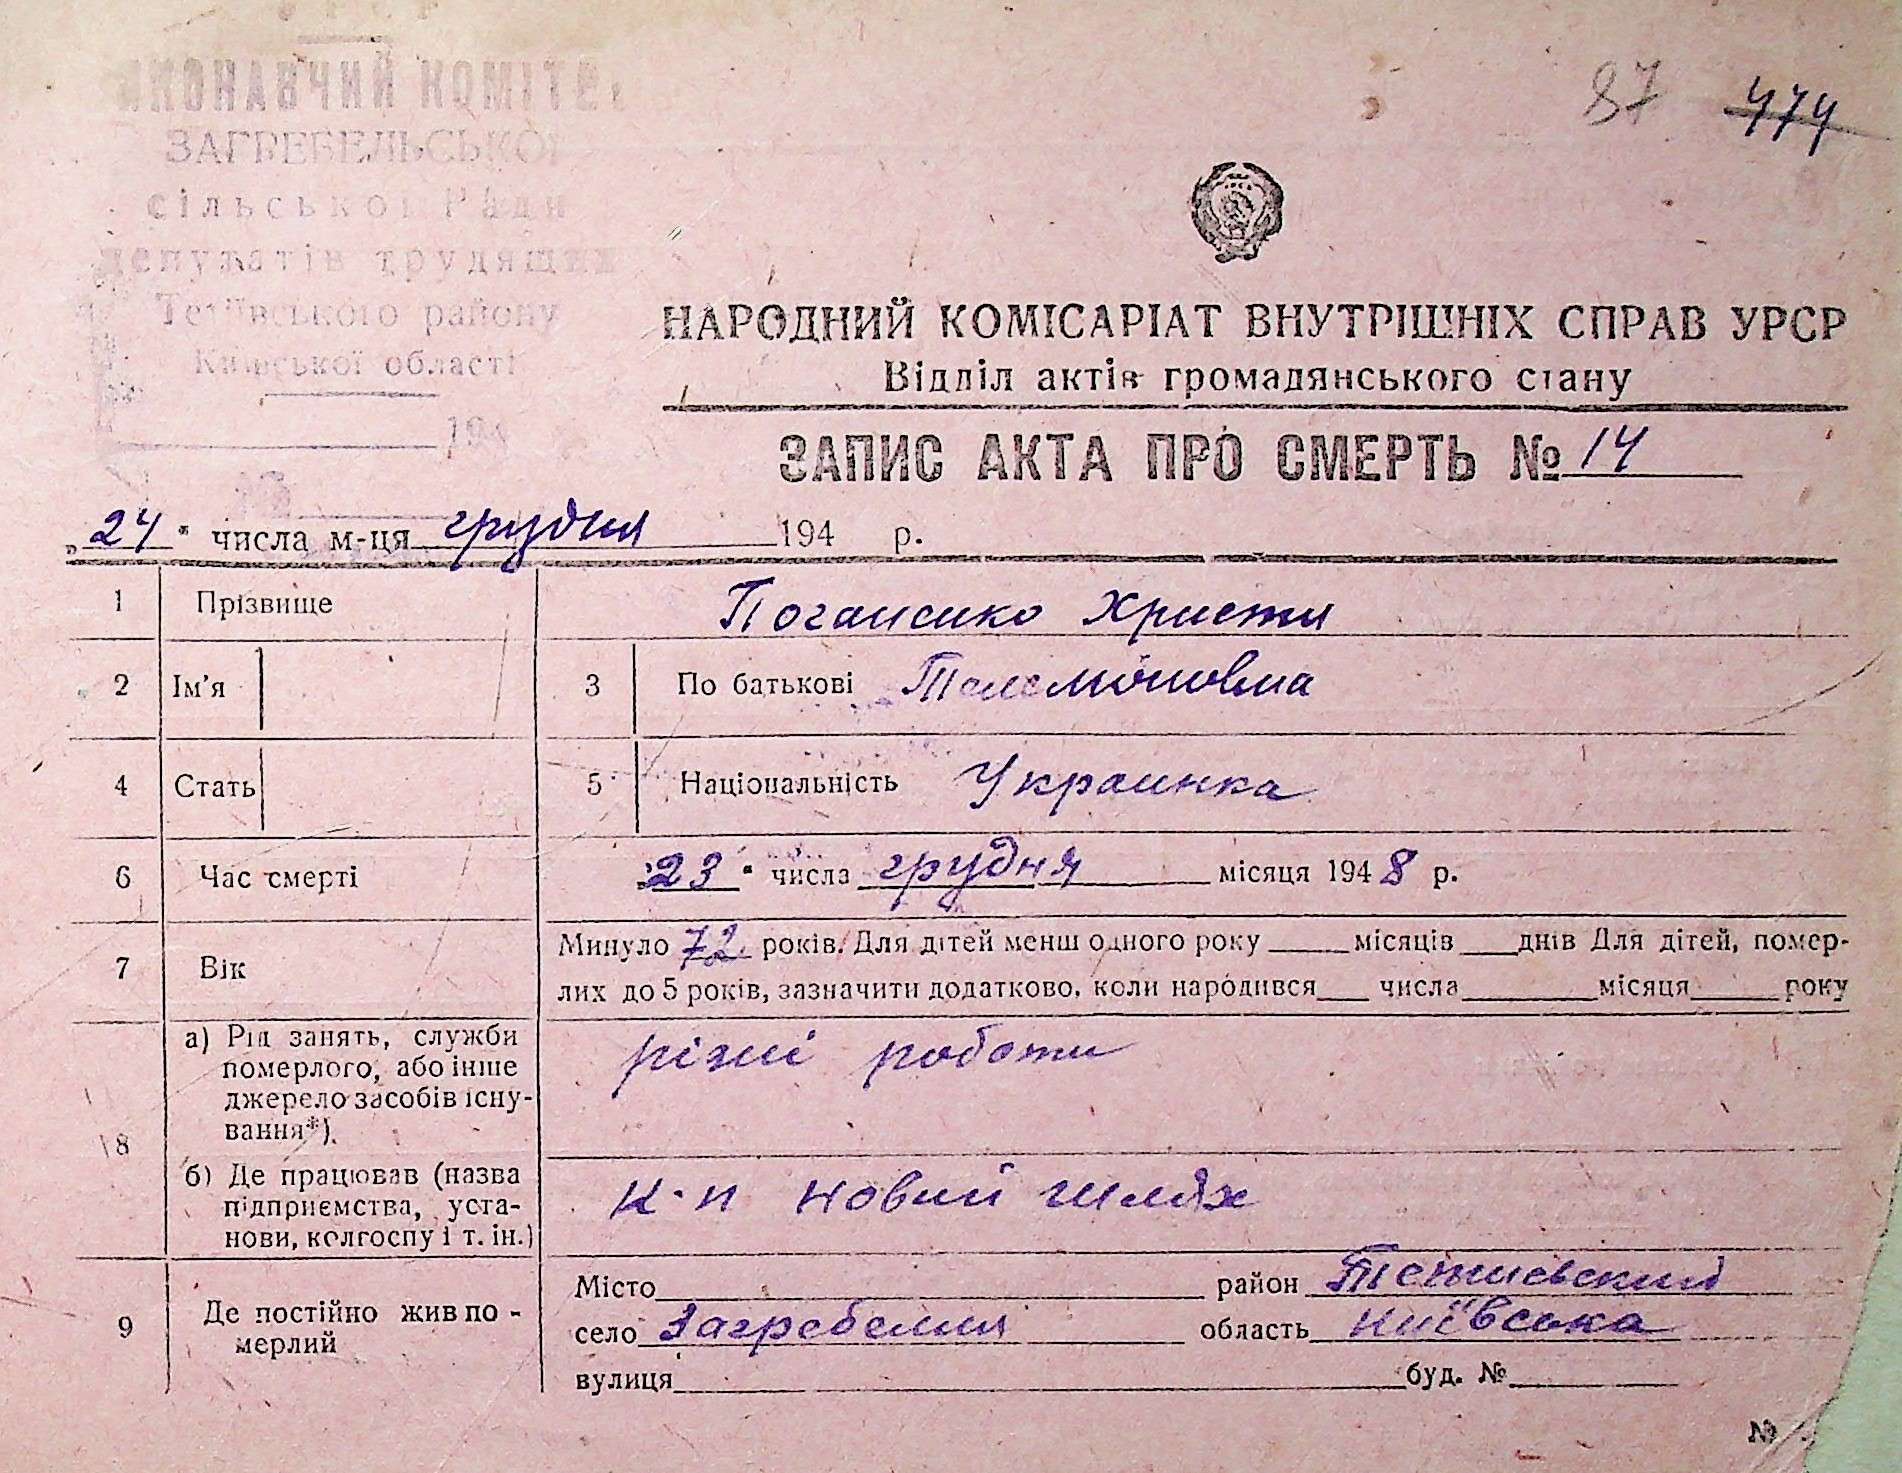 ВИКОНАВЧИЙ КОМІТЕТ
ЗАГРЕБЕЛЬСЬКОЇ
сільської Ради
депутатів трудящих
Тетіївського району
Київської області
194
87 474
НАРОДНИЙ КОМІСАРІАТ ВНУТРІШНІХ СПРАВ УРСР
Відділ актів громадянського стану
ЗАПИС АКТА ПРО СМЕРТЬ № 14
„24" числа м-ця грудня 194 р.
1 Прізвище Погансико Христя
2 Ім'я 3 По батькові Телемоновна
4 Стать 5 Національність Украинка
6 Час смерті „23" числа грудня місяця 1948 р.
7 Вік Минуло 72 років. Для дітей менш одного року місяців днів Для дітей, помер-
лих до 5 років, зазначити додатково, коли народився числа місяця року
8 а) Рід занять, служби померлого, або інше джерело засобів існу-вання*). різні роботи
б) Де працював (назва підприємства, уста-нови, колгоспу і т. ін.) к-п новий шлях
9 Де постійно жив по-мерлий Місто район Тетиевский
село Загребелля область київська
вулиця буд. №
№